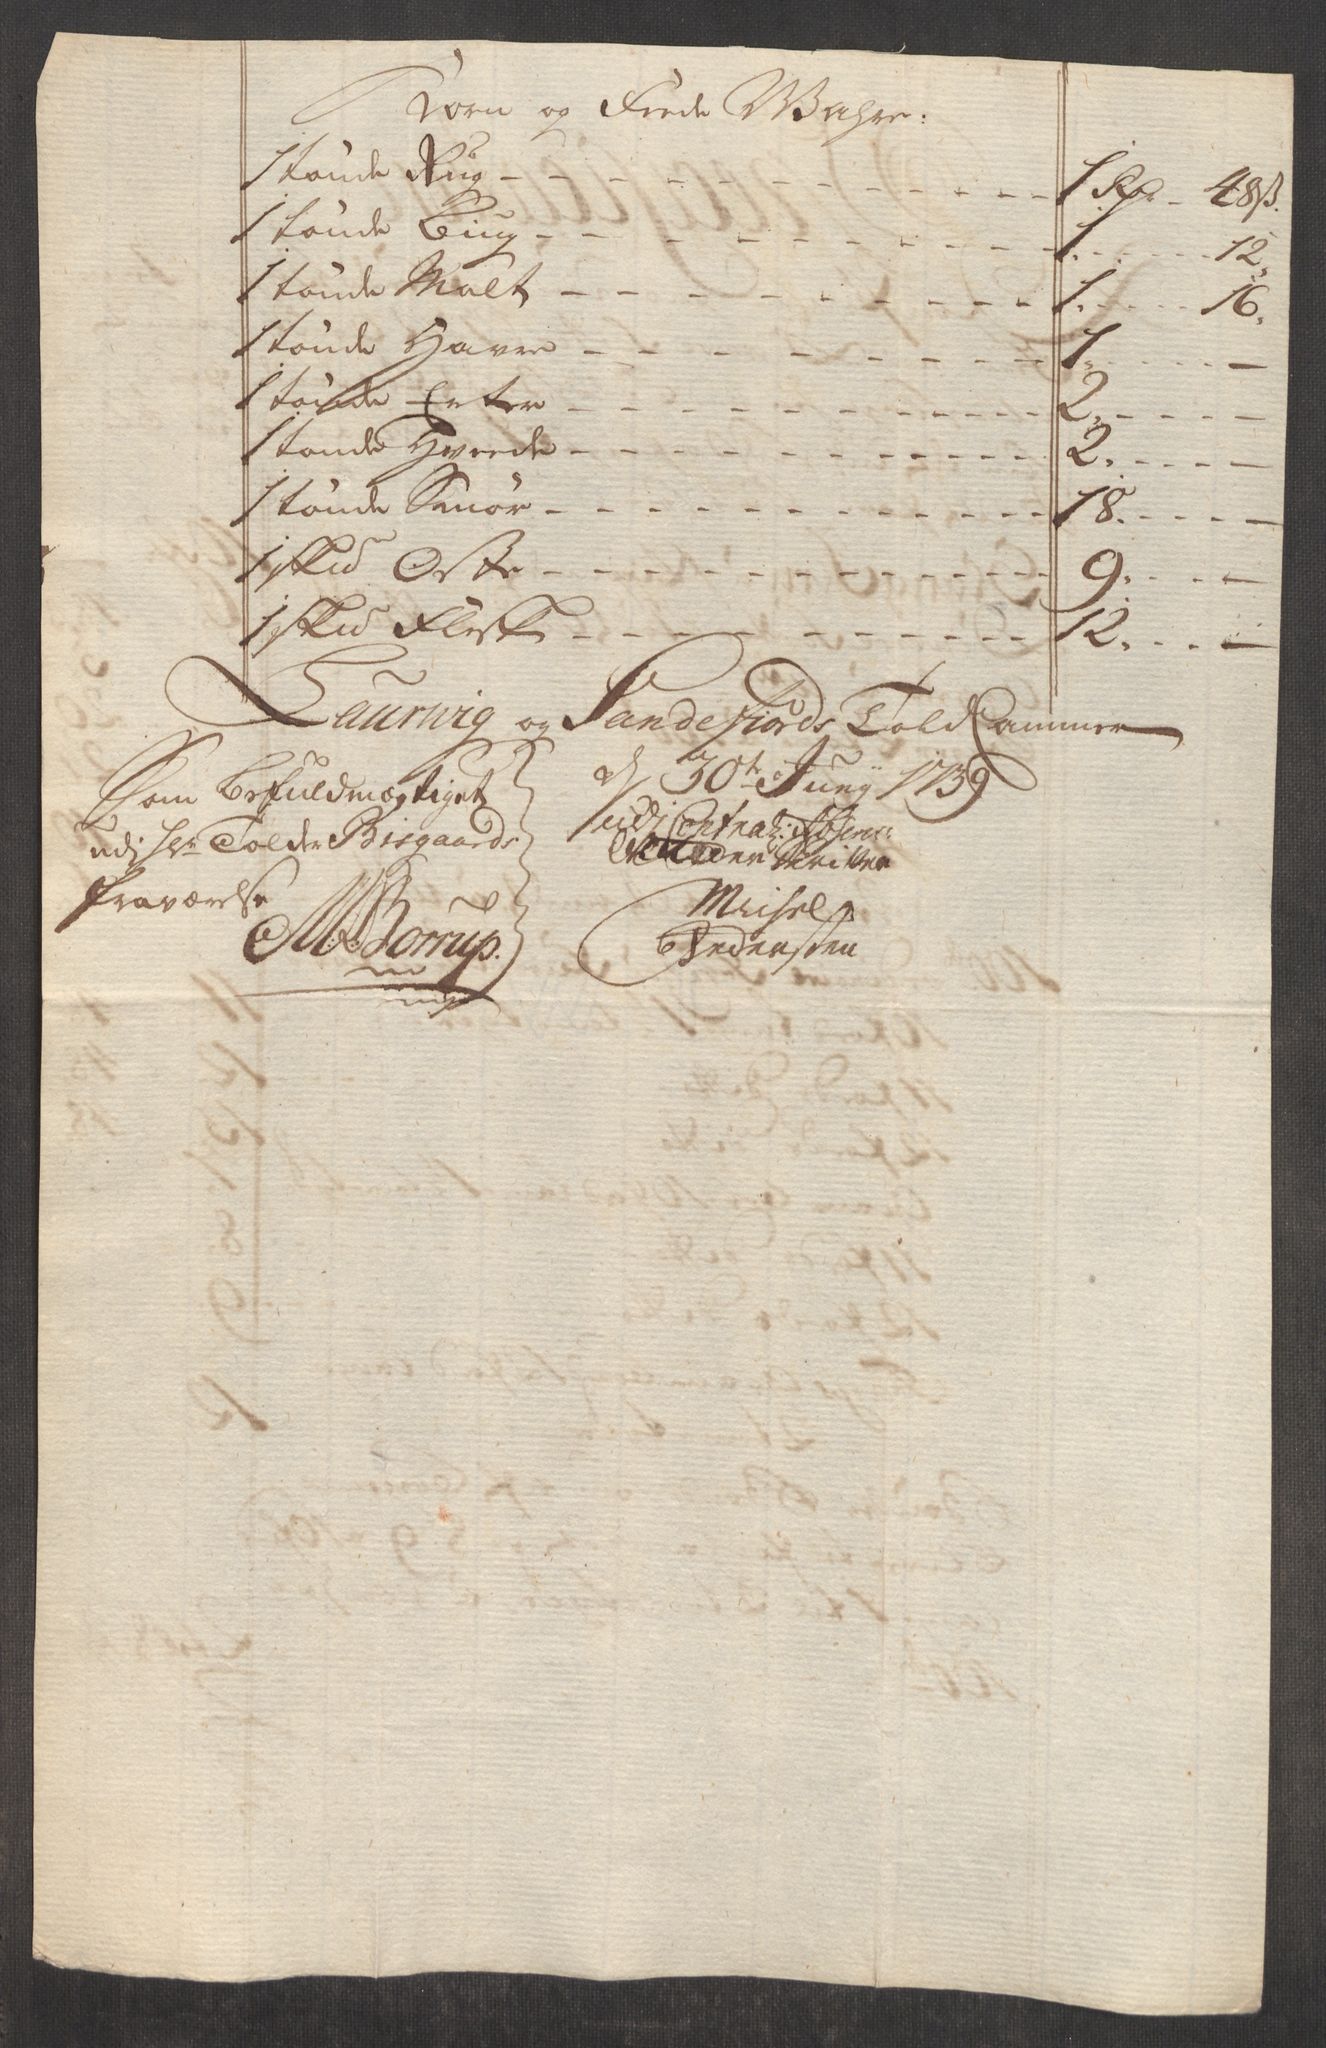 Korn og Fede Wahre:
1 tønde Rug - - - - 1 Rdr - 48 ß.
1 tønde Biug - - - - 1. - - - 12.
1 tønde Malt - - - - 1. - - - 16.
1 tønde Havre - - - - 1. - - - —
1 tønde Erter - - - - 2. - - - —
1 tønde Hvede - - - - 2. - - - —
1 tønde Smør - - - - 18. - - - —
1 sk℔ Oste - - - - 9. - - - —
1 sk℔ Flesk - - - - 12. - - - —
Laurwig og Sandefiords Told Cammer
d 30te Junÿ 1739
Som befuldmægtiget
udj Hr Tolder Bisgaards
fraværelse
MBorrup.
udj
Michel
Pedersen